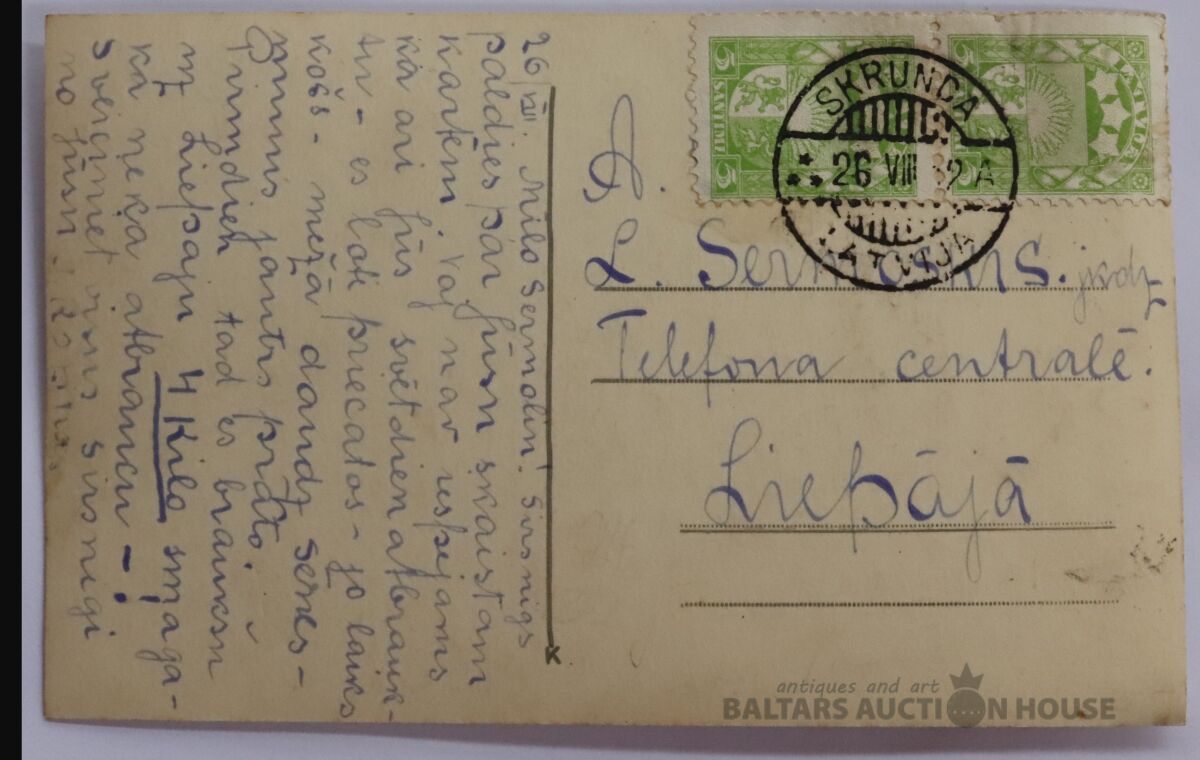 26 VIII. Mīlo Sermolin! Sirsnigs
paldies par Jusu skaistam
kartem. Vaj nav iespejams
ka ari Jūs svētdien atbrauk-
tu - es loti precatos - jo laiks
košs - mežā daudz senes-
mumis jautrs prāts.
Pirmdien tad es braukšu
uz Liepaju 4 Kilo smaga-
ka neka atbraucu - !
Sveiciniet visus sirsnigi
no Jusu
L. Sermolins. jkdz
Telefona centralē.
Liepājā
SKRUNDA
26 VIII 32 A
LATVIJA
5 5
LATVIJA
LATVIJA
K
antiques and art
BALTARS AUCTION HOUSE